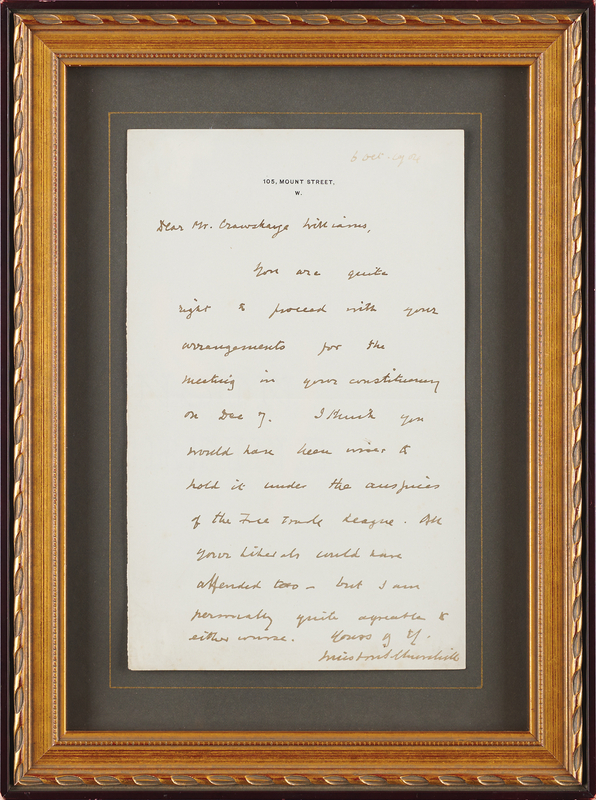 5 Oct. 1904
105, MOUNT STREET,
W.
Dear Mr. Crawshay Williams,
You are quite
right to proceed with your
arrangements for the
meeting in your constituency
on Dec 7. I think you
would have been wiser to
hold it under the auspices
of the Free Trade League. All
your Liberals could have
attended too – but I am
personally quite agreeable to
either course. Yours
Winston S. Churchill